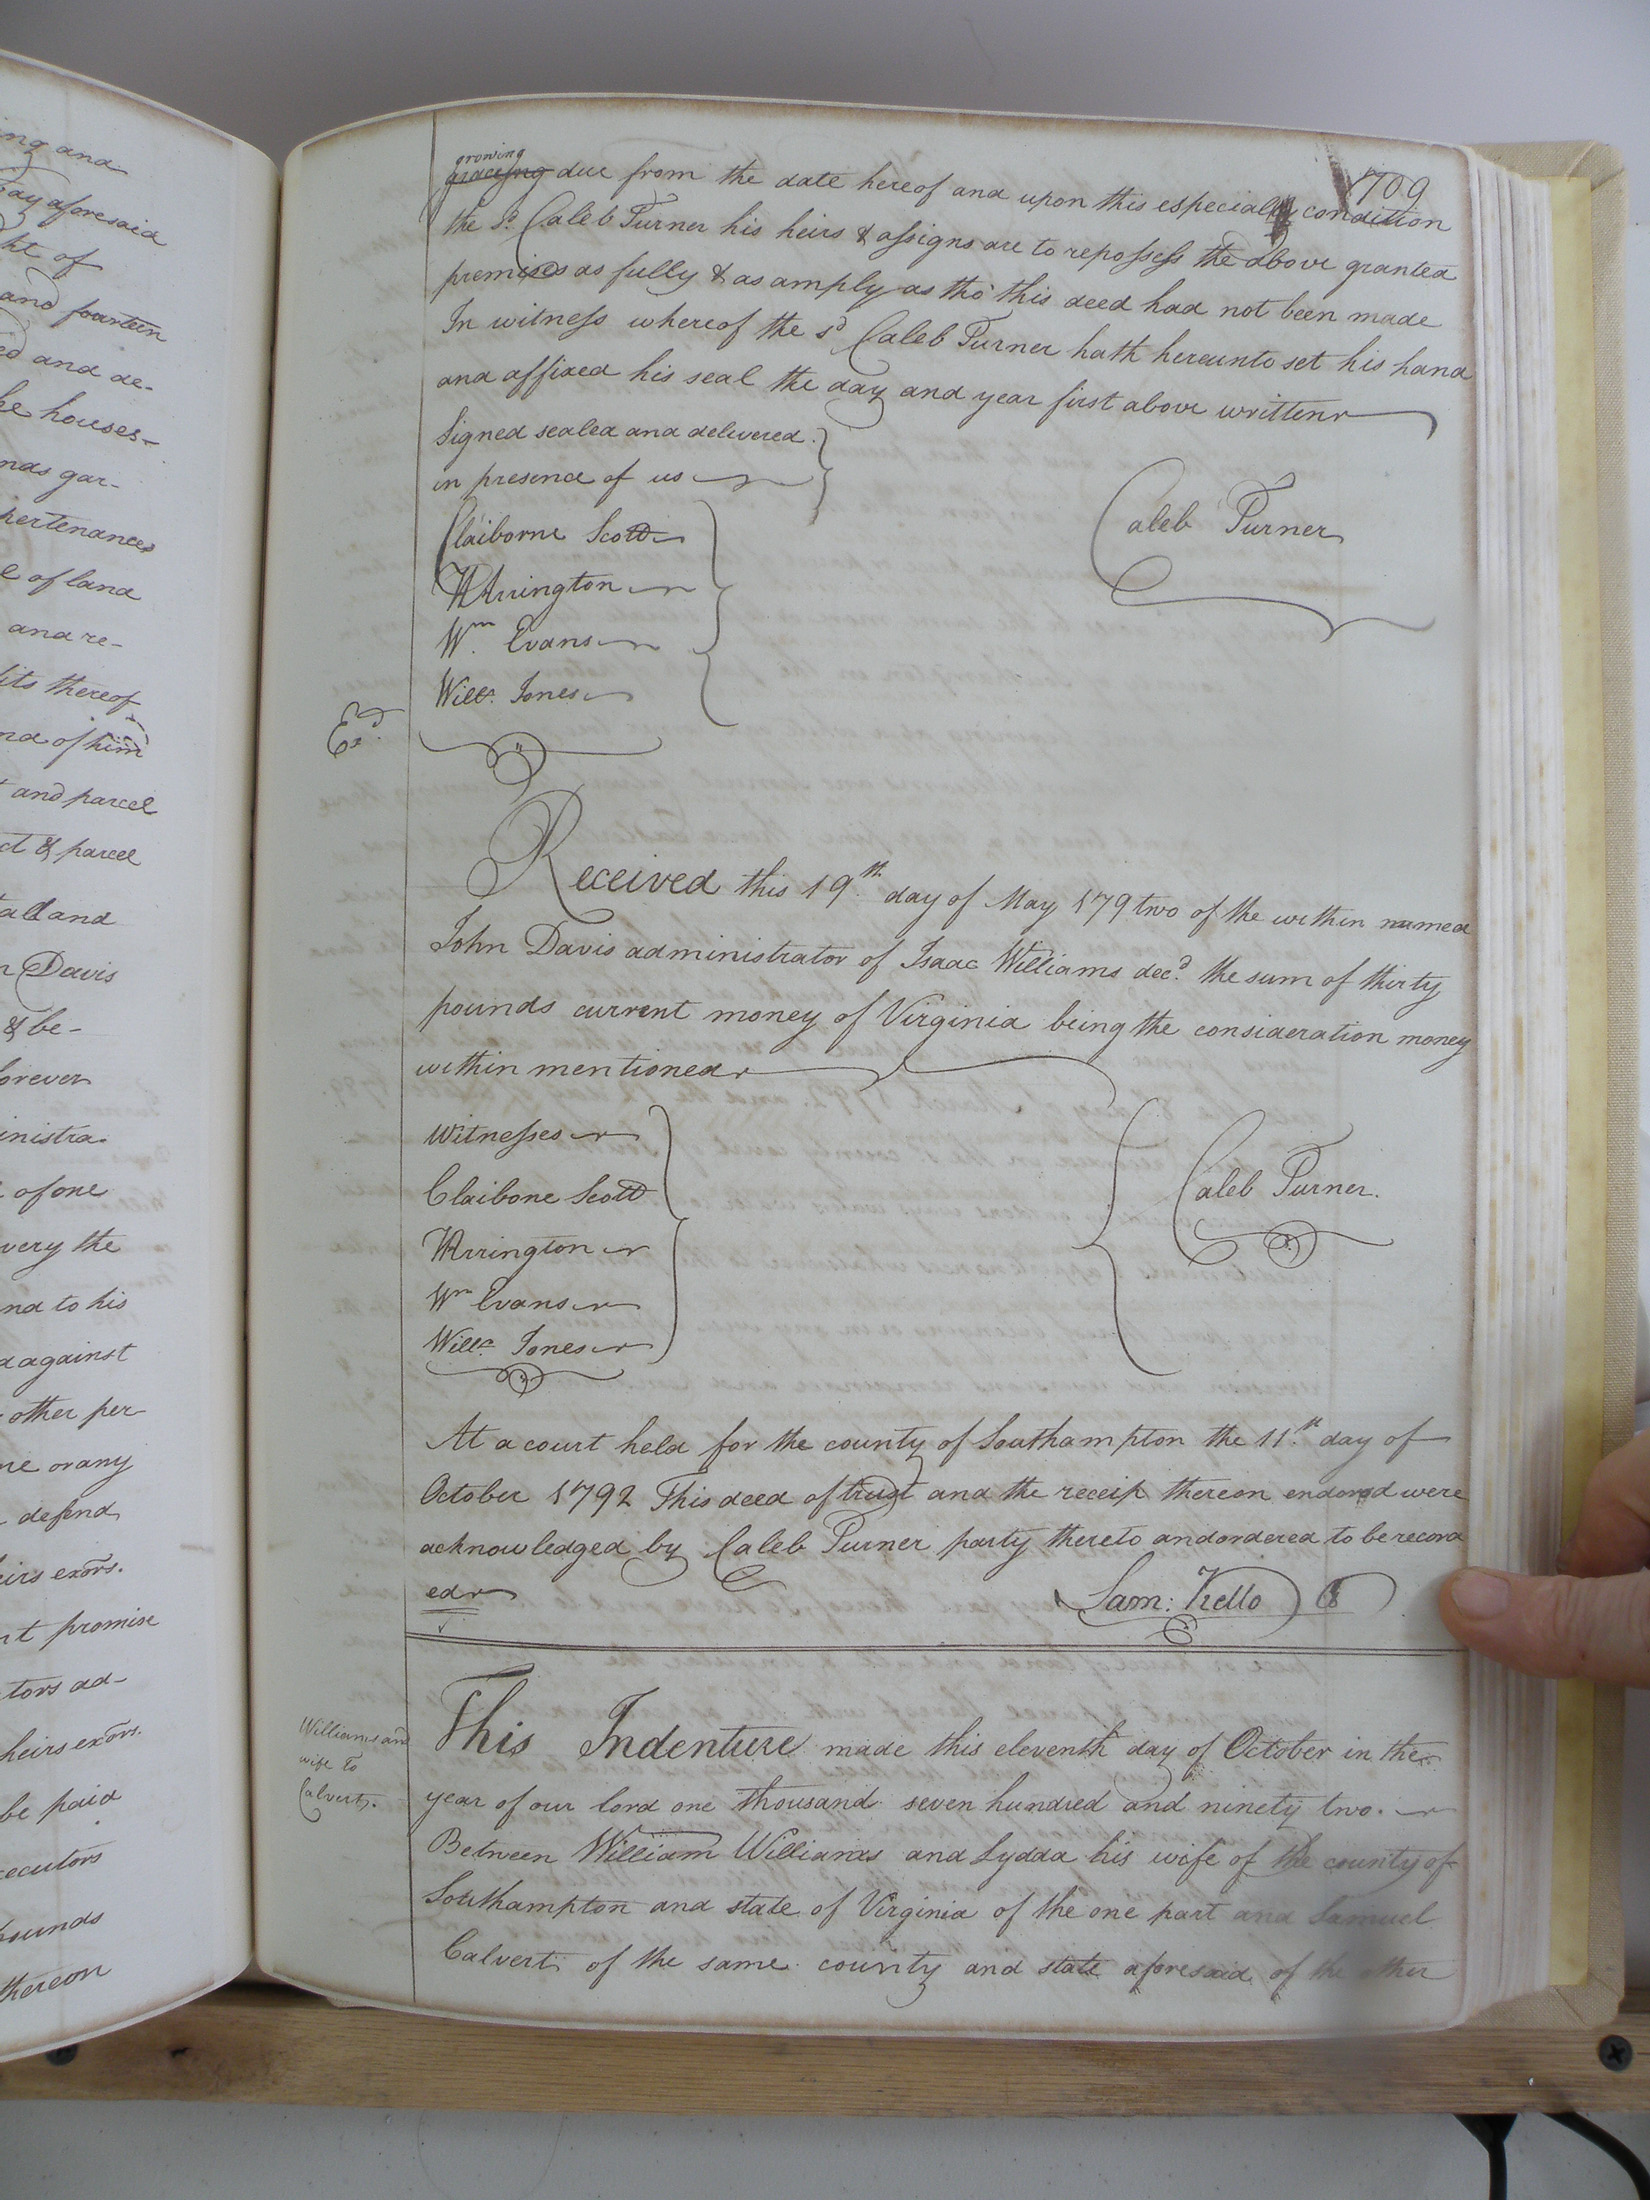 ing and
day aforesaid
ht of
and fourteen
ed and de-
he houses-
nds gar-
pertenances
e of land
and re-
fits thereof
nd of him
and parcel
ct & parcel
and
n Davis
& be-
forever
inistra-
of one
very the
nd to his
d against
other per-
me or any
defend
eirs exors.
nt promise
tors ad-
heirs exors.
be paid
xecutors
pounds
thereon
709
growing
due from the date hereof and upon this especially condition
the sd. Caleb Turner his heirs & assigns are to repossess the above granted
premises as fully & as amply as tho' this deed had not been made
In witness whereof the sd Caleb Turner hath hereunto set his hand
and affixed his seal the day and year first above written
Signed sealed and delivered
in presence of us
Caleb Turner
Claiborne Scott
Arrington
Wm. Evans
Will. Jones
Exd.
Received this 19th. day of May 179 two of the within named
John Davis administrator of Isaac Williams decd. the sum of thirty
pounds current money of Virginia being the consideration money
within mentioned
Witnesses
Claibone Scott
Caleb Turner.
Arrington
Wm Evans
Will. Jones
At a court held for the county of Southampton the 11th. day of
October 1792 This deed of trust and the receip thereon endorsd were
acknowledged by Caleb Turner party thereto and ordered to be record
ed
Sam: Kello C
Williams and
wife To
Calvert.
This Indenture made this eleventh day of October in the
year of our lord one thousand seven hundred and ninety two.
Between William Williams and Lydda his wife of the county of
Southampton and state of Virginia of the one part and Samuel
Calvert of the same county and state aforesaid of the other